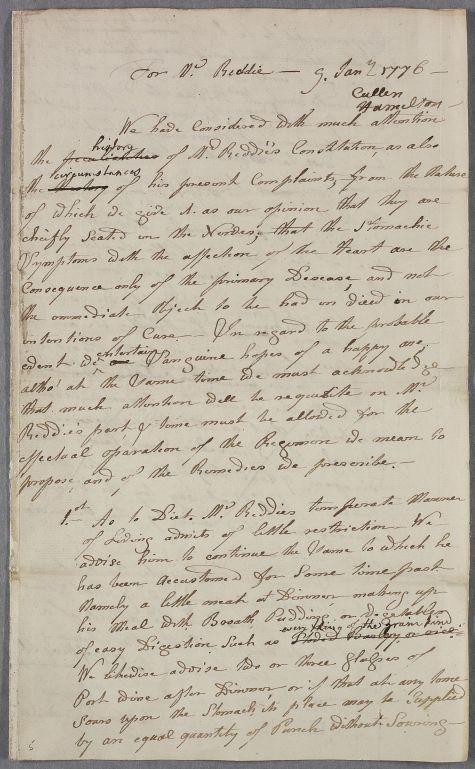 For Mr. Reddie — 9. Jany. 1776 —
Cullen
Hamelton —
We have Considered with much attention
history
the peculiarities of Mr. Reddie's Constitution, as also
circumstances
the History of his present Complaints, from the Nature
of which we give it as our opinion that they are
chiefly Seated in the Nerves, that the Stomachic
Symptoms with the affection of the Heart are the
Consequence only of the primary Disease, and not
the immediate Object to be had in View in our
intentions of Cure. — In regard to the probable
entertain
event we are Sanguine hopes of a happy one,
altho' at the Same time we must acknowledge
that much attention will be requisite on Mr.
Reddie's part & time must be allowed for the
effectual operation of the Regimen we mean to
propose and of the Remedies we prescribe. —
1st. As to Diet. Mr. Reddies temperate Manner
of Living admits of little restriction. We
advise him to continue the Same to which he
has been Accustomed for Some time past
Namely a little meat at Dinner making up
his Meal with Broath, Pudding, or Vegetables
every thing of the grain kind
of easy Digestion Such as Boiled Barley or rice.
We likewise advise two or three glasses of
Port wine after Dinner or if that at any time
Sours upon the Stomach, its place may be Supplied
by an equal quantity of Punch without Souring —